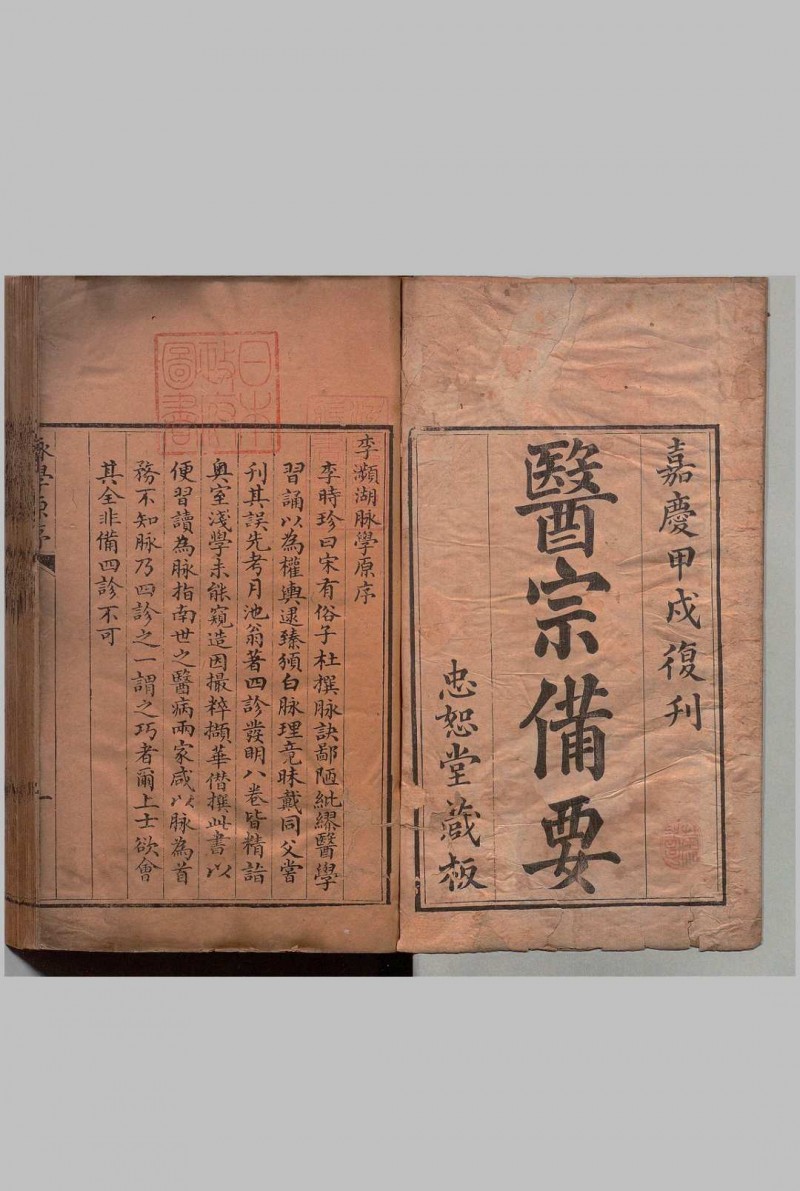 嘉慶甲戌復刊
醫宗備要
忠恕堂藏板
日本
政府
圖書
李瀕湖脉學原序
李時珍曰宋有俗子杜撰脉訣鄙陋紕繆醫學
習誦以為權輿逮臻頒白脉理竟昧戴同父嘗
刊其誤先考月池翁著四診發明八卷皆精詣
奥室淺學未能窺造因撮粹擷華僣撰此書以
便習讀為脉指南世之醫病兩家咸以脉為首
務不知脉乃四診之一謂之巧者爾上士欲會
其全非備四診不可
脉學原序
一